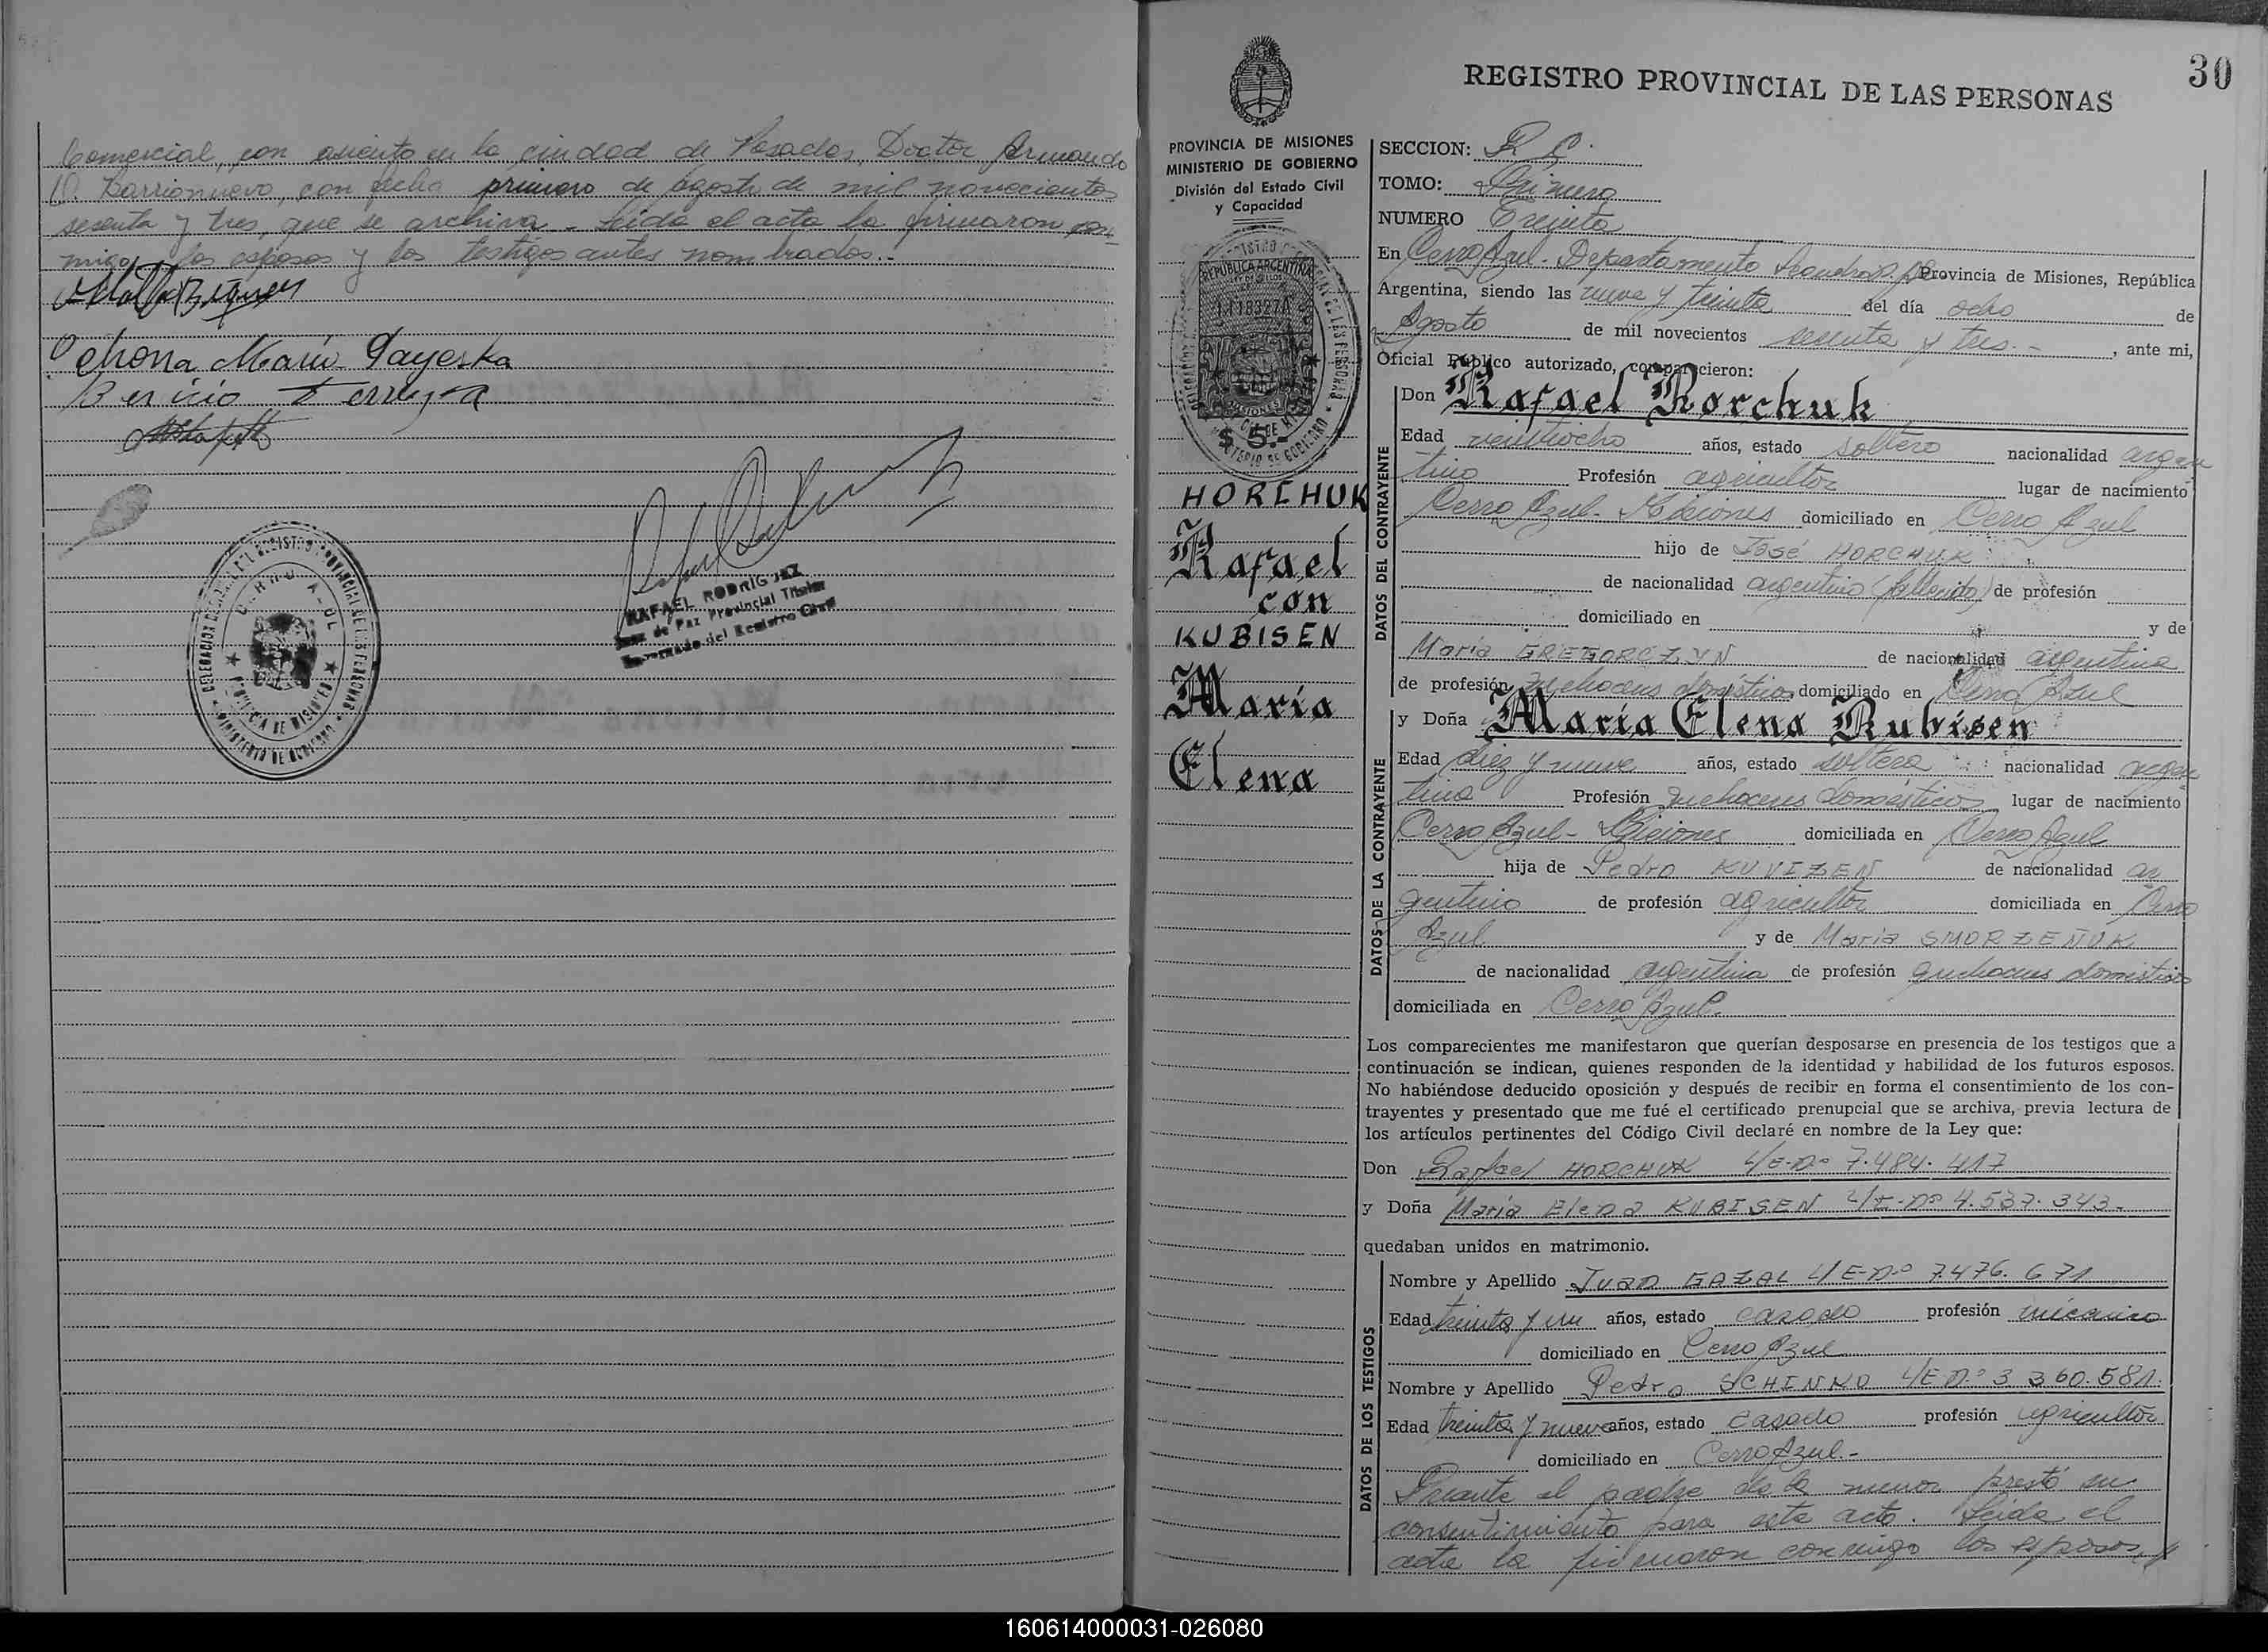 Comercial, con asiento en la ciudad de Posadas, Doctor Armando
Barrionuevo, con fecha primero de Agosto de mil novecientos
sesenta y tres, que se archiva.- Leida el acta la firmaron con-
migo, los esposos y los testigos antes nombrados.-
Maria
RAFAEL RODRIGUEZ
Juez de Paz Provincial Titular
Encargado del Registro Civil
CERRO AZUL
PROVINCIA DE MISIONES
MINISTERIO DE GOBIERNO
30
REGISTRO PROVINCIAL DE LAS PERSONAS
PROVINCIA DE MISIONES
MINISTERIO DE GOBIERNO
División del Estado Civil
y Capacidad
REPUBLICA ARGENTINA
MISIONES
$ 5.-
HORCHUK
Rafael
con
KUBISEN
María
Elena
SECCION: R C.
TOMO: Primero
NUMERO Treinta
En Cerro Azul - Departamento Leandro N. Provincia de Misiones, República
Argentina, siendo las nueve y treinta del día ocho de
Agosto de mil novecientos sesenta y tres.- , ante mi,
Oficial Público autorizado, comparecieron:
DATOS DEL CONTRAYENTE
Don Rafael Horchuk
Edad veintiocho años, estado soltero nacionalidad argen
tino Profesión agricultor lugar de nacimiento
Cerro Azul - Misiones domiciliado en Cerro Azul
hijo de José HORCHUK
de nacionalidad argentino (fallecido) de profesión
domiciliado en y de
María GREGORCZYN de nacionalidad argentina
de profesión quehaceres domésticos domiciliado en Cerro Azul
DATOS DE LA CONTRAYENTE
y Doña María Elena Kubisen
Edad diez y nueve años, estado soltera nacionalidad argen
tina Profesión quehaceres domésticos lugar de nacimiento
Cerro Azul - Misiones domiciliada en Cerro Azul
hija de Pedro KUVIZEN de nacionalidad ar
gentino de profesión agricultor domiciliada en Cerro
Azul y de María SMORZEÑUK
de nacionalidad argentina de profesión quehaceres domésticos
domiciliada en Cerro Azul.
Los comparecientes me manifestaron que querían desposarse en presencia de los testigos que a
continuación se indican, quienes responden de la identidad y habilidad de los futuros esposos.
No habiéndose deducido oposición y después de recibir en forma el consentimiento de los con-
trayentes y presentado que me fué el certificado prenupcial que se archiva, previa lectura de
los artículos pertinentes del Código Civil declaré en nombre de la Ley que:
Don Rafael HORCHUK L/E.Nº 7.484.417
y Doña María Elena KUBISEN L/E.Nº 4.537.343.-
quedaban unidos en matrimonio.
DATOS DE LOS TESTIGOS
Nombre y Apellido Juan GAZAL L/E-Nº 7.476.671
Edad treinta y un años, estado casado profesión mecanico
domiciliado en Cerro Azul
Nombre y Apellido Pedro SCHINKO L/E Nº 3.360.581.
Edad treinta y nueve años, estado casado profesión agricultor
domiciliado en Cerro Azul.-
Presente el padre de la menor prestó su
consentimiento para este acto. Leida el
acta la firmaron conmigo los esposos, y
160614000031-026080